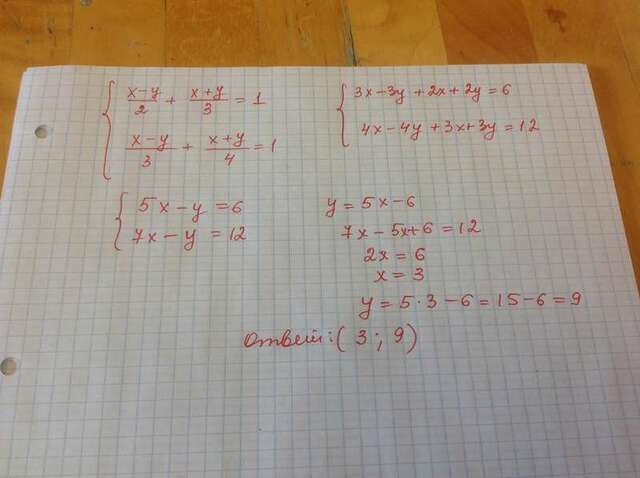 (x-y)/2 + (x+y)/3 = 1
(x-y)/3 + (x+y)/4 = 1
3x-3y+2x+2y=6
4x-4y+3x+3y=12
5x-y=6
7x-y=12
y=5x-6
7x-5x+6=12
2x=6
x=3
y=5·3-6=15-6=9
Ответ: (3; 9)